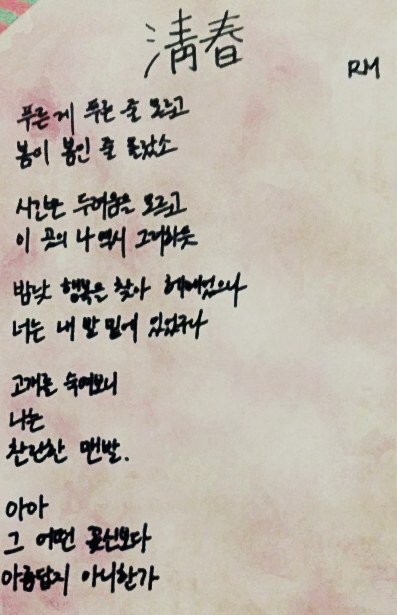 清春
RM
푸른 게 푸른 줄 모르고
봄이 봄인 줄 몰랐소
시간만 두려움을 모르고
이 곳의 나 역시 그러하듯
밤낮 행복을 찾아 헤매었으나
너는 내 발 밑에 있었구나
고개를 숙여보니
나는
찬란한 맨발.
아아
그 어떤 꽃신보다
아름답지 아니한가